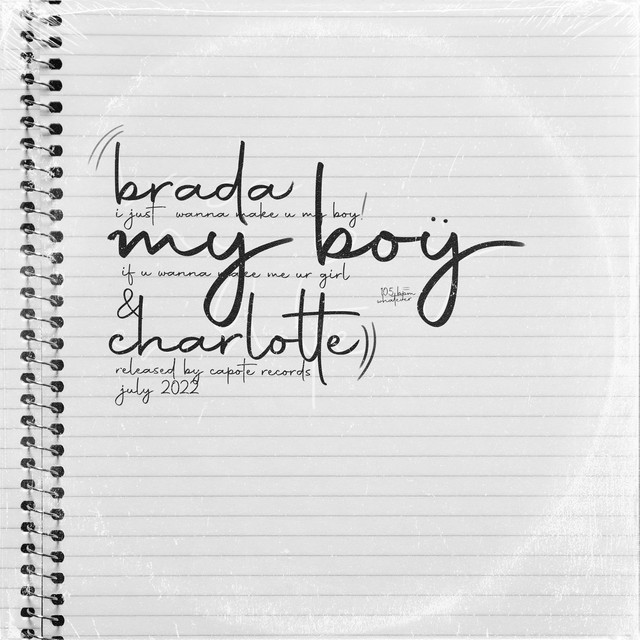 brada
i just wanna make u my boy!
my boÿ
if u wanna make me ur girl
&
charlotte
released by capote records
july 2022
105 bpm
whatever